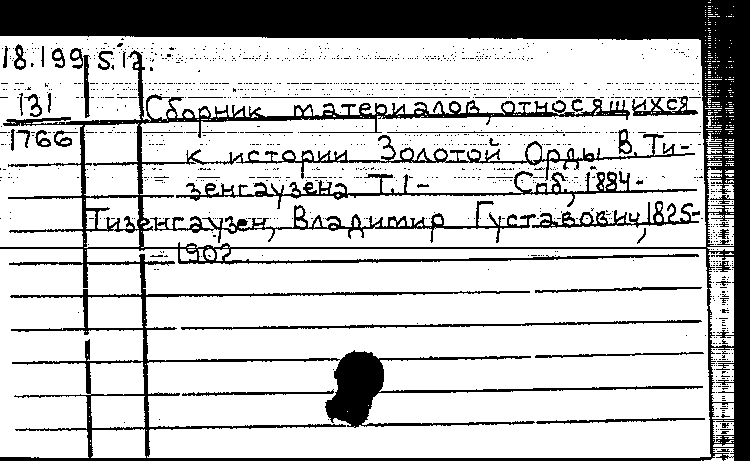 18.199 S.12.
131
1766
Сборник материалов, относящихся
к истории Золотой Орды В. Ти-
зенгаузена. Т.1- Спб., 1884-
Тизенгаузен, Владимир Густавович, 1825-
1902